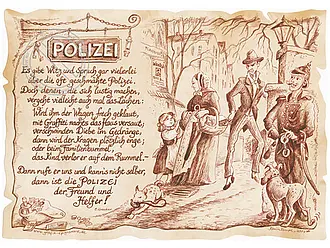 POLIZEI
Es gibt Witz und Spruch gar vielerlei
über die oft geschmähte Polizei.
Doch denen, die sich lustig machen,
vergeht vielleicht auch mal das Lachen:
Wird ihm der Wagen frech geklaut,
mit Graffiti nachts das Haus versaut,
verschwinden Diebe im Gedränge,
dann wird der Kragen plötzlich enge,
oder beim Familienbummel,
das Kind verlor er auf dem Rummel.–
Dann rufe er uns und kann's nicht selber,
dann ist die POLIZEI
der Freund und
Helfer!